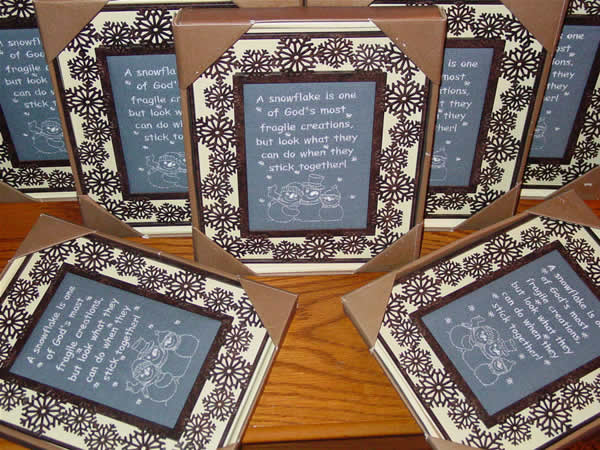 A snowflake is
of God's most
fragile creations,
but look what they
can do when they
stick together!
A snowflake is one
of God's most
fragile creations,
but look what they
can do when they
stick together!
snowflake is one
of God's most
fragile creations,
but look what they
can do when they
stick together!
A snowflake is one
of God's most
fragile creations,
but look what they
can do when they
stick together!
A snowflake is one
of God's most
fragile creations,
but look what they
can do when they
stick together!